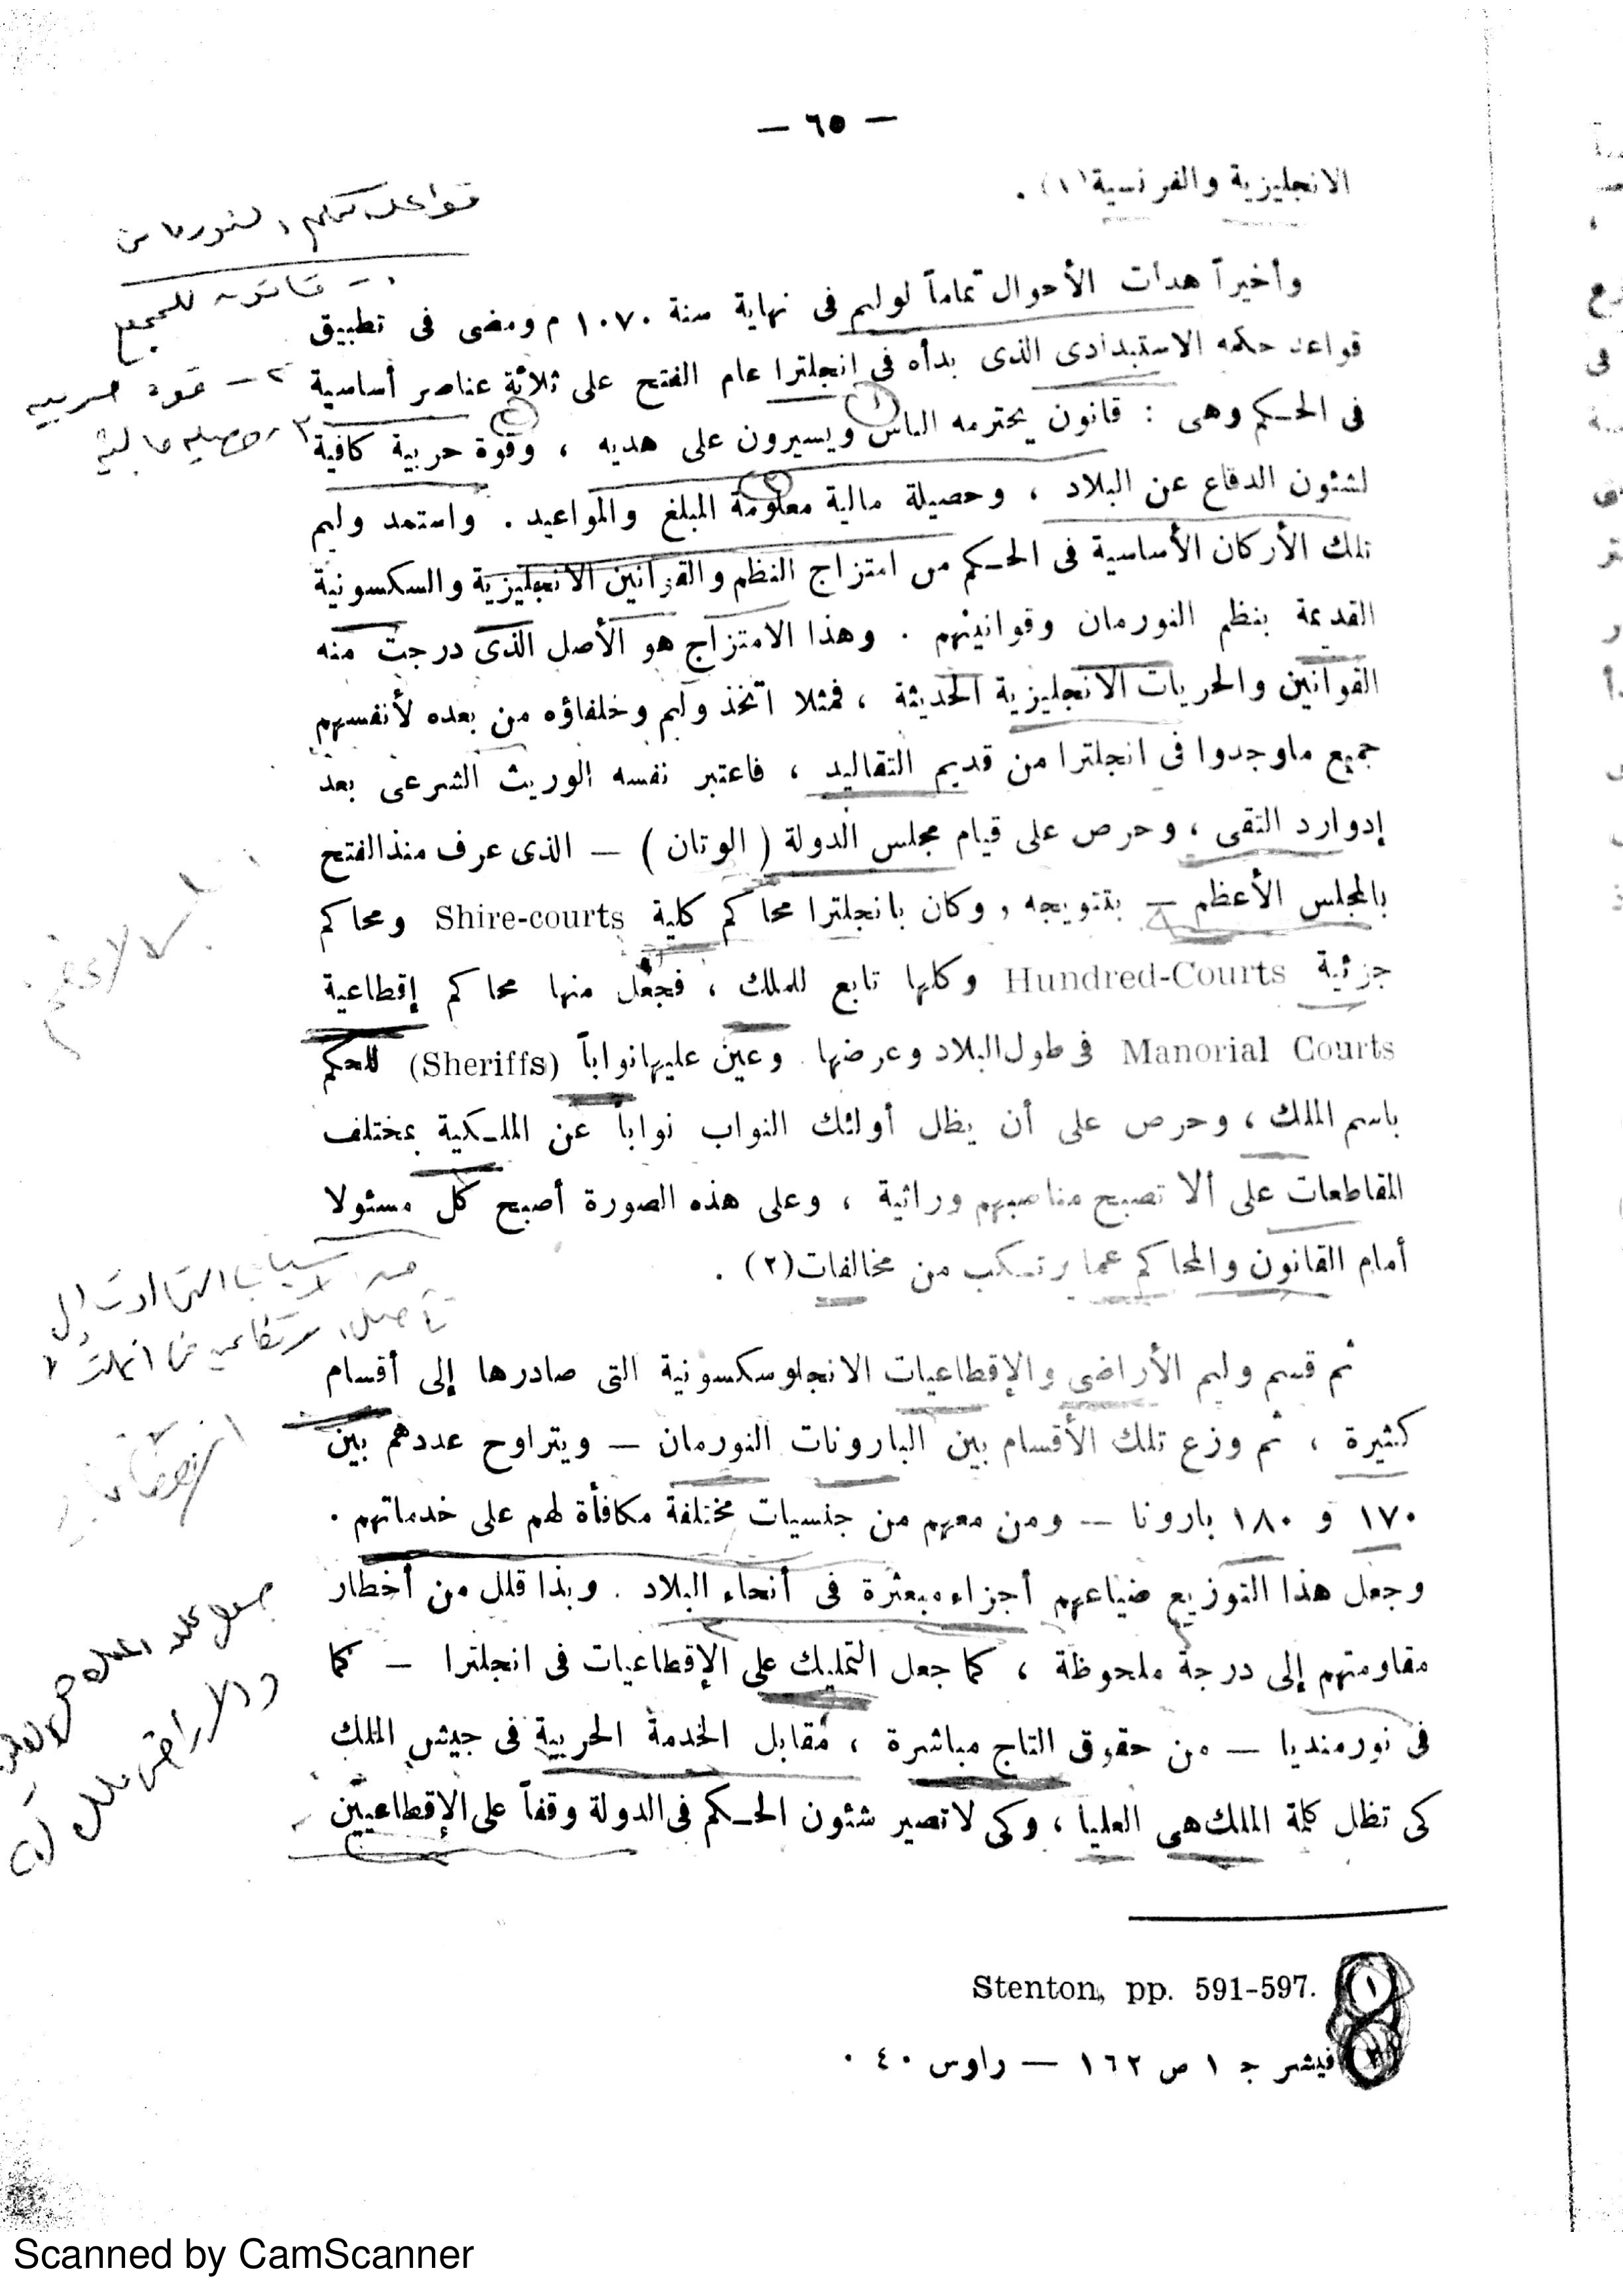 — ٦٥ —
الانجليزية والفرنسية(١) .
وأخيراً هدأت الأحوال تماماً لوليم فى نهاية سنة ١٠٧٠ م ومضى فى تطبيق
قواعد حكمه الاستبدادى الذى بدأه فى انجلترا عام الفتح على ثلاثة عناصر أساسية
فى الحكم وهى : قانون يحترمه الناس ويسيرون على هديه ، وقوة حربية كافية
لشئون الدفاع عن البلاد ، وحصيلة مالية معلومة المبلغ والمواعيد . واستمد وليم
تلك الأركان الأساسية فى الحكم من امتزاج النظم والقوانين الانجليزية والسكسونية
القديمة بنظم النورمان وقوانينهم . وهذا الامتزاج هو الأصل الذى درجت منه
القوانين والحريات الانجليزية الحديثة ، فمثلا اتخذ وليم وخلفاؤه من بعده لأنفسهم
جميع ماوجدوا فى انجلترا من قديم التقاليد ، فاعتبر نفسه الوريث الشرعى بعد
إدوارد التقى ، وحرص على قيام مجلس الدولة ( الوتان ) — الذى عرف منذ الفتح
بالمجلس الأعظم — بتتويجه , وكان بانجلترا محاكم كلية Shire-courts ومحاكم
جزئية Hundred-Courts وكلها تابع للملك ، فجعل منها محاكم إقطاعية
Manorial Courts فى طول البلاد وعرضها . وعين عليها نواباً (Sheriffs) للحكم
باسم الملك ، وحرص على أن يظل أولئك النواب نواباً عن الملكية بمختلف
المقاطعات على ألا تصبح مناصبهم وراثية ، وعلى هذه الصورة أصبح كل مسئولا
أمام القانون والمحاكم عما يرتكب من مخالفات(٢) .
ثم قسم وليم الأراضى والإقطاعيات الانجلوسكسونية التى صادرها إلى أقسام
كثيرة ، ثم وزع تلك الأقسام بين البارونات النورمان — ويتراوح عددهم بين
١٧٠ و ١٨٠ بارونا — ومن معهم من جنسيات مختلفة مكافأة لهم على خدماتهم .
وجعل هذا التوزيع ضياعهم أجزاء مبعثرة فى أنحاء البلاد . وبذا قلل من أخطار
مقاومتهم إلى درجة ملحوظة ، كما جعل التمليك على الإقطاعيات فى انجلترا — كما
فى نورمنديا — من حقوق التاج مباشرة ، مقابل الخدمة الحربية فى جيش الملك
كى تظل كلمة الملك هى العليا ، وكى لا تصير شئون الحكم فى الدولة وقفاً على الإقطاعيين
١ Stenton, pp. 591-597.
٢ فيشر ج ١ ص ١٦٢ — راوس ٤٠ .
٢ — قوة حربيه
٣ - حصيله ماليه
Scanned by CamScanner